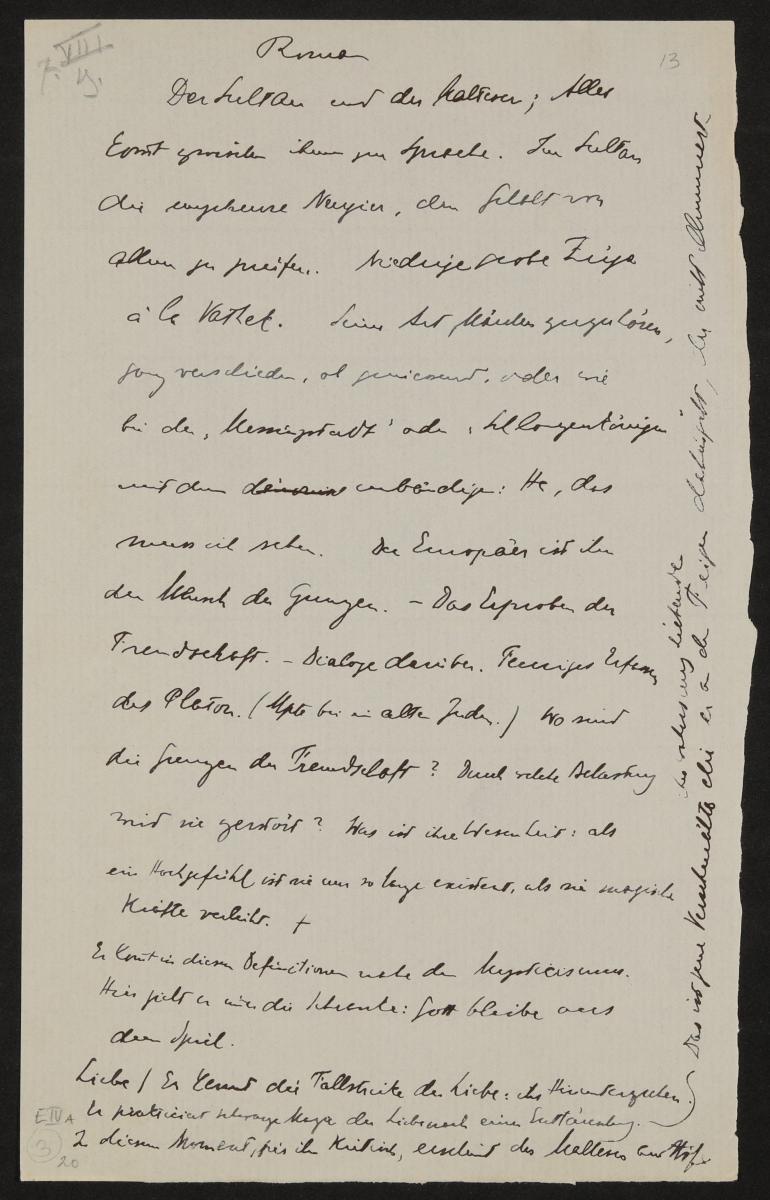 VIII
13
Roman
Der Sultan und der Malteser; Alles
komt zwischen ihnen zur Sprache. Im Sultan
die ungeheure Neugier, den Gehalt von
allem zu greifen. Niedrige grobe Züge
à la Vathek. Seine Art Märchen zuzuhören,
ganz verschieden, ob geniessend, oder wie
bei der „Messingstadt" oder „Schlangenkönigin"
mit dem unbändigen: He, das
muss ich sehen. Der Europäer ist ihm
der Mensch der Grenzen. – Das Erproben der
Freundschaft. – Dialoge darüber. Feuriges Erfassen
des Platon. (Mpte bei alten Juden.) Wo sind
die Grenzen der Freundschaft? Durch welche Belastung
wird sie zerstört? Was ist ihre Wesenheit: als
ein Hochgefühl ist sie nur so lange existent, als sie magische
Kräfte verleiht. +
Er komt in diesen Definitionen nahe dem Mysticismus.
Hier zieht er immer die Schranke: Gott bleibe aus
dem Spiel.
Liebe / Er kennt die Fallstricke der Liebe: ihr Hinunterziehen.
Er prakticiert schwarze Magie der Liebe nach einer Enttäuschung.
In diesem Moment, für ihn kritisch, erscheint der Malteser am Hof.
Das ist jene Verschmähte die er an den Feigen dahingibt, ihr mitschlummert
E IV A
3
20